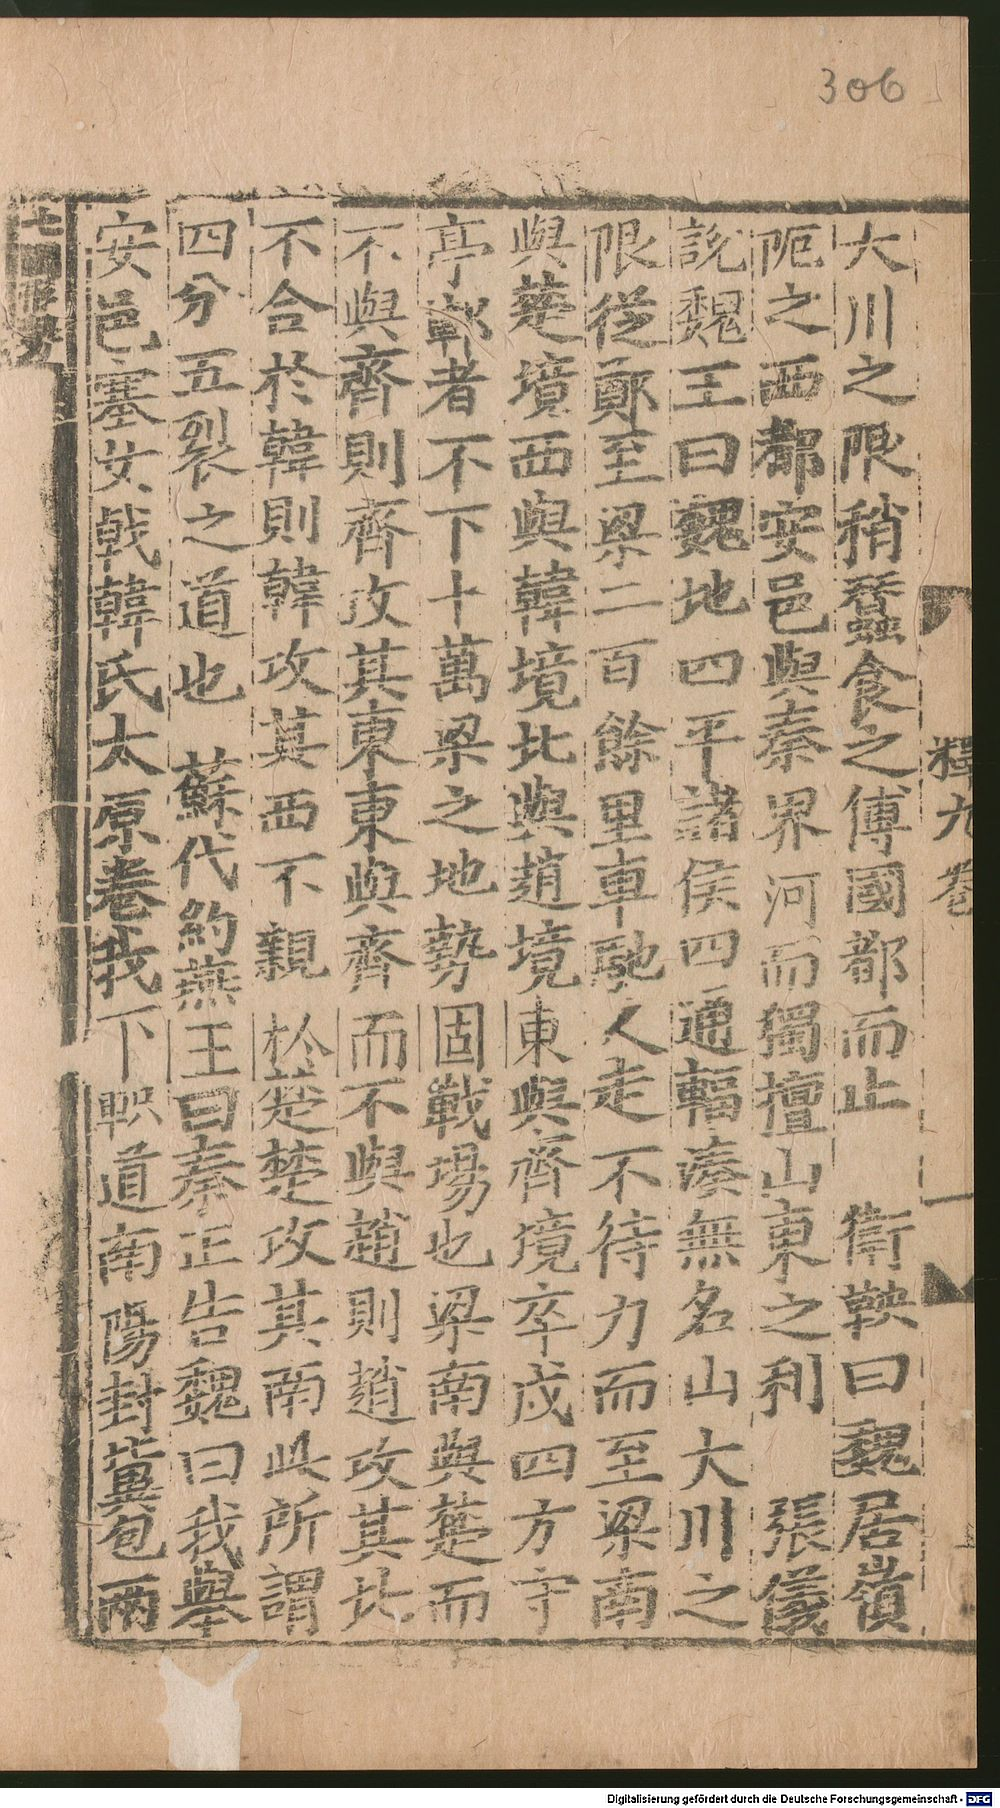 306
釋九卷
大川之限稍蠶食之傅國都而止　衛鞅曰魏居嶺
阨之西都安邑與秦界河而獨擅山東之利　張儀
說魏王曰魏地四平諸侯四通輻湊無名山大川之
限從鄭至梁二百餘里車馳人走不待力而至梁南
與楚境西與韓境北與趙境東與齊境卒戍四方守
亭鄣者不下十萬梁之地勢固戰場也梁南與楚而
不與齊則齊攻其東東與齊而不與趙則趙攻其北
不合於韓則韓攻其西不親於楚楚攻其南此所謂
四分五裂之道也　蘇代約燕王曰秦正告魏曰我舉
安邑塞女戟韓氏太原卷我下軹道南陽封冀包兩
七國形勢
Digitalisierung gefördert durch die Deutsche Forschungsgemeinschaft - DFG